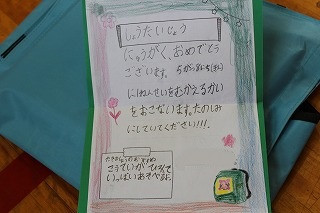 しょうたいじょう
にゅうがく、おめでとう
ございます。 5がつ
1ねんせいをむかえるかい
をおこないます。たのしみ
にしていてください!!!.
こうていが ひろくて
いっぱいあそべるよ。